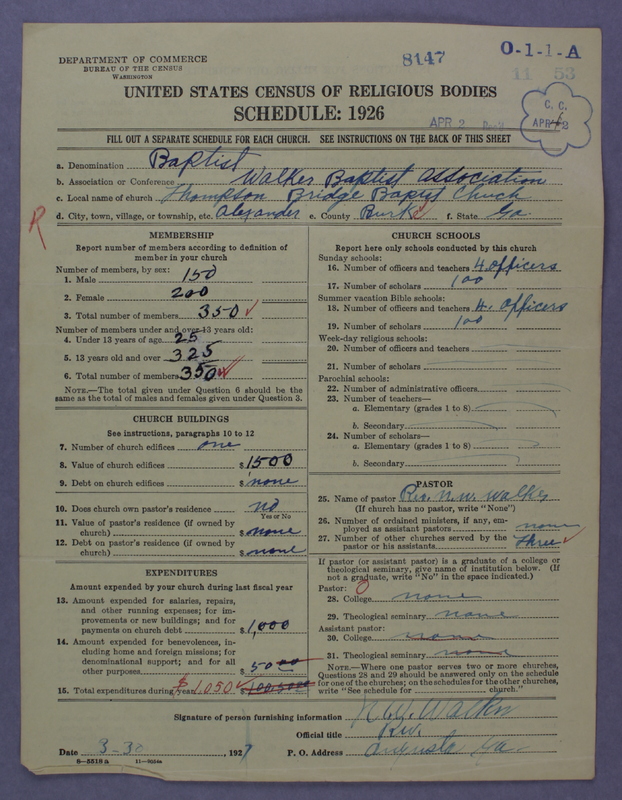 DEPARTMENT OF COMMERCE
BUREAU OF THE CENSUS
WASHINGTON
8147
O-1-1-A
11 53
UNITED STATES CENSUS OF RELIGIOUS BODIES
SCHEDULE: 1926
APR 2
C. C.
APR 2
FILL OUT A SEPARATE SCHEDULE FOR EACH CHURCH. SEE INSTRUCTIONS ON THE BACK OF THIS SHEET
a. Denomination Baptist
b. Association or Conference Walker Baptist Association
c. Local name of church Thompson Bridge Baptist Church
d. City, town, village, or township, etc. Alexander e. County Burke f. State Ga
R
MEMBERSHIP
Report number of members according to definition of
member in your church
Number of members, by sex:
1. Male 150
2. Female 200
3. Total number of members 350
Number of members under and over 13 years old:
4. Under 13 years of age 25
5. 13 years old and over 325
6. Total number of members 350
NOTE.—The total given under Question 6 should be the
same as the total of males and females given under Question 3.
CHURCH BUILDINGS
See instructions, paragraphs 10 to 12
7. Number of church edifices one
8. Value of church edifices $1500
9. Debt on church edifices $none
10. Does church own pastor's residence? no
Yes or No
11. Value of pastor's residence (if owned by
church) $none
12. Debt on pastor's residence (if owned by
church) $none
EXPENDITURES
Amount expended by your church during last fiscal year
13. Amount expended for salaries, repairs,
and other running expenses; for im-
provements or new buildings; and for
payments on church debt $1,000
14. Amount expended for benevolences, in-
cluding home and foreign missions; for
denominational support; and for all
other purposes $5000
15. Total expenditures during year $1,050
CHURCH SCHOOLS
Report here only schools conducted by this church
Sunday schools:
16. Number of officers and teachers 4 officers
17. Number of scholars 100
Summer vacation Bible schools:
18. Number of officers and teachers 4. officers
19. Number of scholars 100
Week-day religious schools:
20. Number of officers and teachers
21. Number of scholars
Parochial schools:
22. Number of administrative officers
23. Number of teachers—
a. Elementary (grades 1 to 8)
b. Secondary
24. Number of scholars—
a. Elementary (grades 1 to 8)
b. Secondary
PASTOR
25. Name of pastor Rev. N. W. Walker
(If church has no pastor, write "None")
26. Number of ordained ministers, if any, em-
ployed as assistant pastors none
27. Number of other churches served by the
pastor or his assistants Three
If pastor (or assistant pastor) is a graduate of a college or
theological seminary, give name of institution below. (If
not a graduate, write "No" in the space indicated.)
Pastor: O
28. College none
29. Theological seminary none
Assistant pastor:
30. College none
31. Theological seminary none
NOTE.—Where one pastor serves two or more churches,
Questions 28 and 29 should be answered only on the schedule
for one of the churches; on the schedules for the other churches,
write "See schedule for church."
Signature of person furnishing information N. W. Walker
Official title Rev.
Date 3-30, 1927 P. O. Address Augusta Ga
8—5518 a